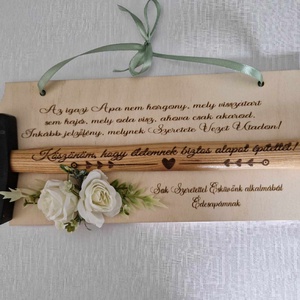 Az igazi Apa nem horgony, mely visszatart
sem hajó, mely oda visz, ahova csak akarod.
Inkább jelzőfény, melynek Szeretete Vezet Utadon!
Köszönöm, hogy életemnek biztos alapot építettél!
Sok Szeretettel Esküvőnk alkalmából
Édesapámnak